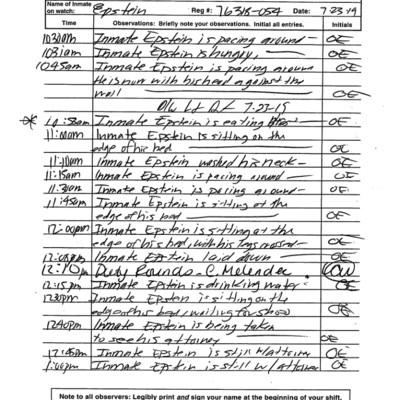 Name of Inmate on watch: Epstein Reg #: 76318-054 Date: 7-23-19
Time Observations: Briefly note your observations. Initial all entries. Initials
10:30am Inmate Epstein is pacing around OE
10:31am Inmate Epstein is hungry. OE
10:45am Inmate Epstein is pacing around
He is now with his head against the
wall OE
7-23-19
Inmate Epstein is eating OE
11:00am Inmate Epstein is sitting on the
edge of his bed OE
11:10am Inmate Epstein washed his neck OE
11:15am Inmate Epstein is pacing around OE
11:30am Inmate Epstein is pacing around OE
11:45am Inmate Epstein is sitting at the
edge of his bed OE
12:00pm Inmate Epstein is sitting at the
edge of his bed, with his legs crossed OE
Inmate Epstein laid down OE
12:10pm Duty Rounds - C. Melendez
12:15pm Inmate Epstein is drinking water OE
12:30pm Inmate Epstein is sitting on the
edge of his bed, waiting for OE
12:40pm Inmate Epstein is being taken
to see his attorney OE
12:45pm Inmate Epstein is still w/attorney OE
1:00pm Inmate Epstein is still w/attorney OE
Note to all observers: Legibly print and sign your name at the beginning of your shift.